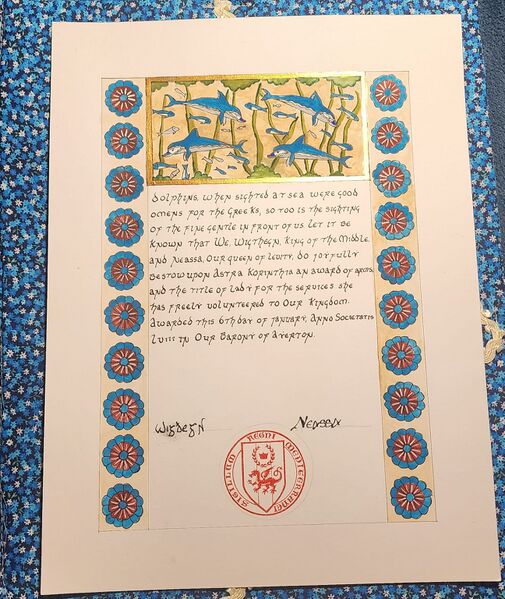 Dolphins, when sighted at sea were good
omens for the Greeks, so too is the sighting
of the fine gentle in front of us let it be
known that We, Wigthegn, King of the Middle,
and Neassa, Our queen of levity, do joyfully
bestow upon Astra Korinthia an award of arms,
and the title of lady for the services she
has freely volunteered to Our Kingdom.
Awarded this 6th day of january, Anno Societatis
lviii in Our Barony of Ayerton.
Neassa
SIGILLUM REGNI MEDITERRANEI